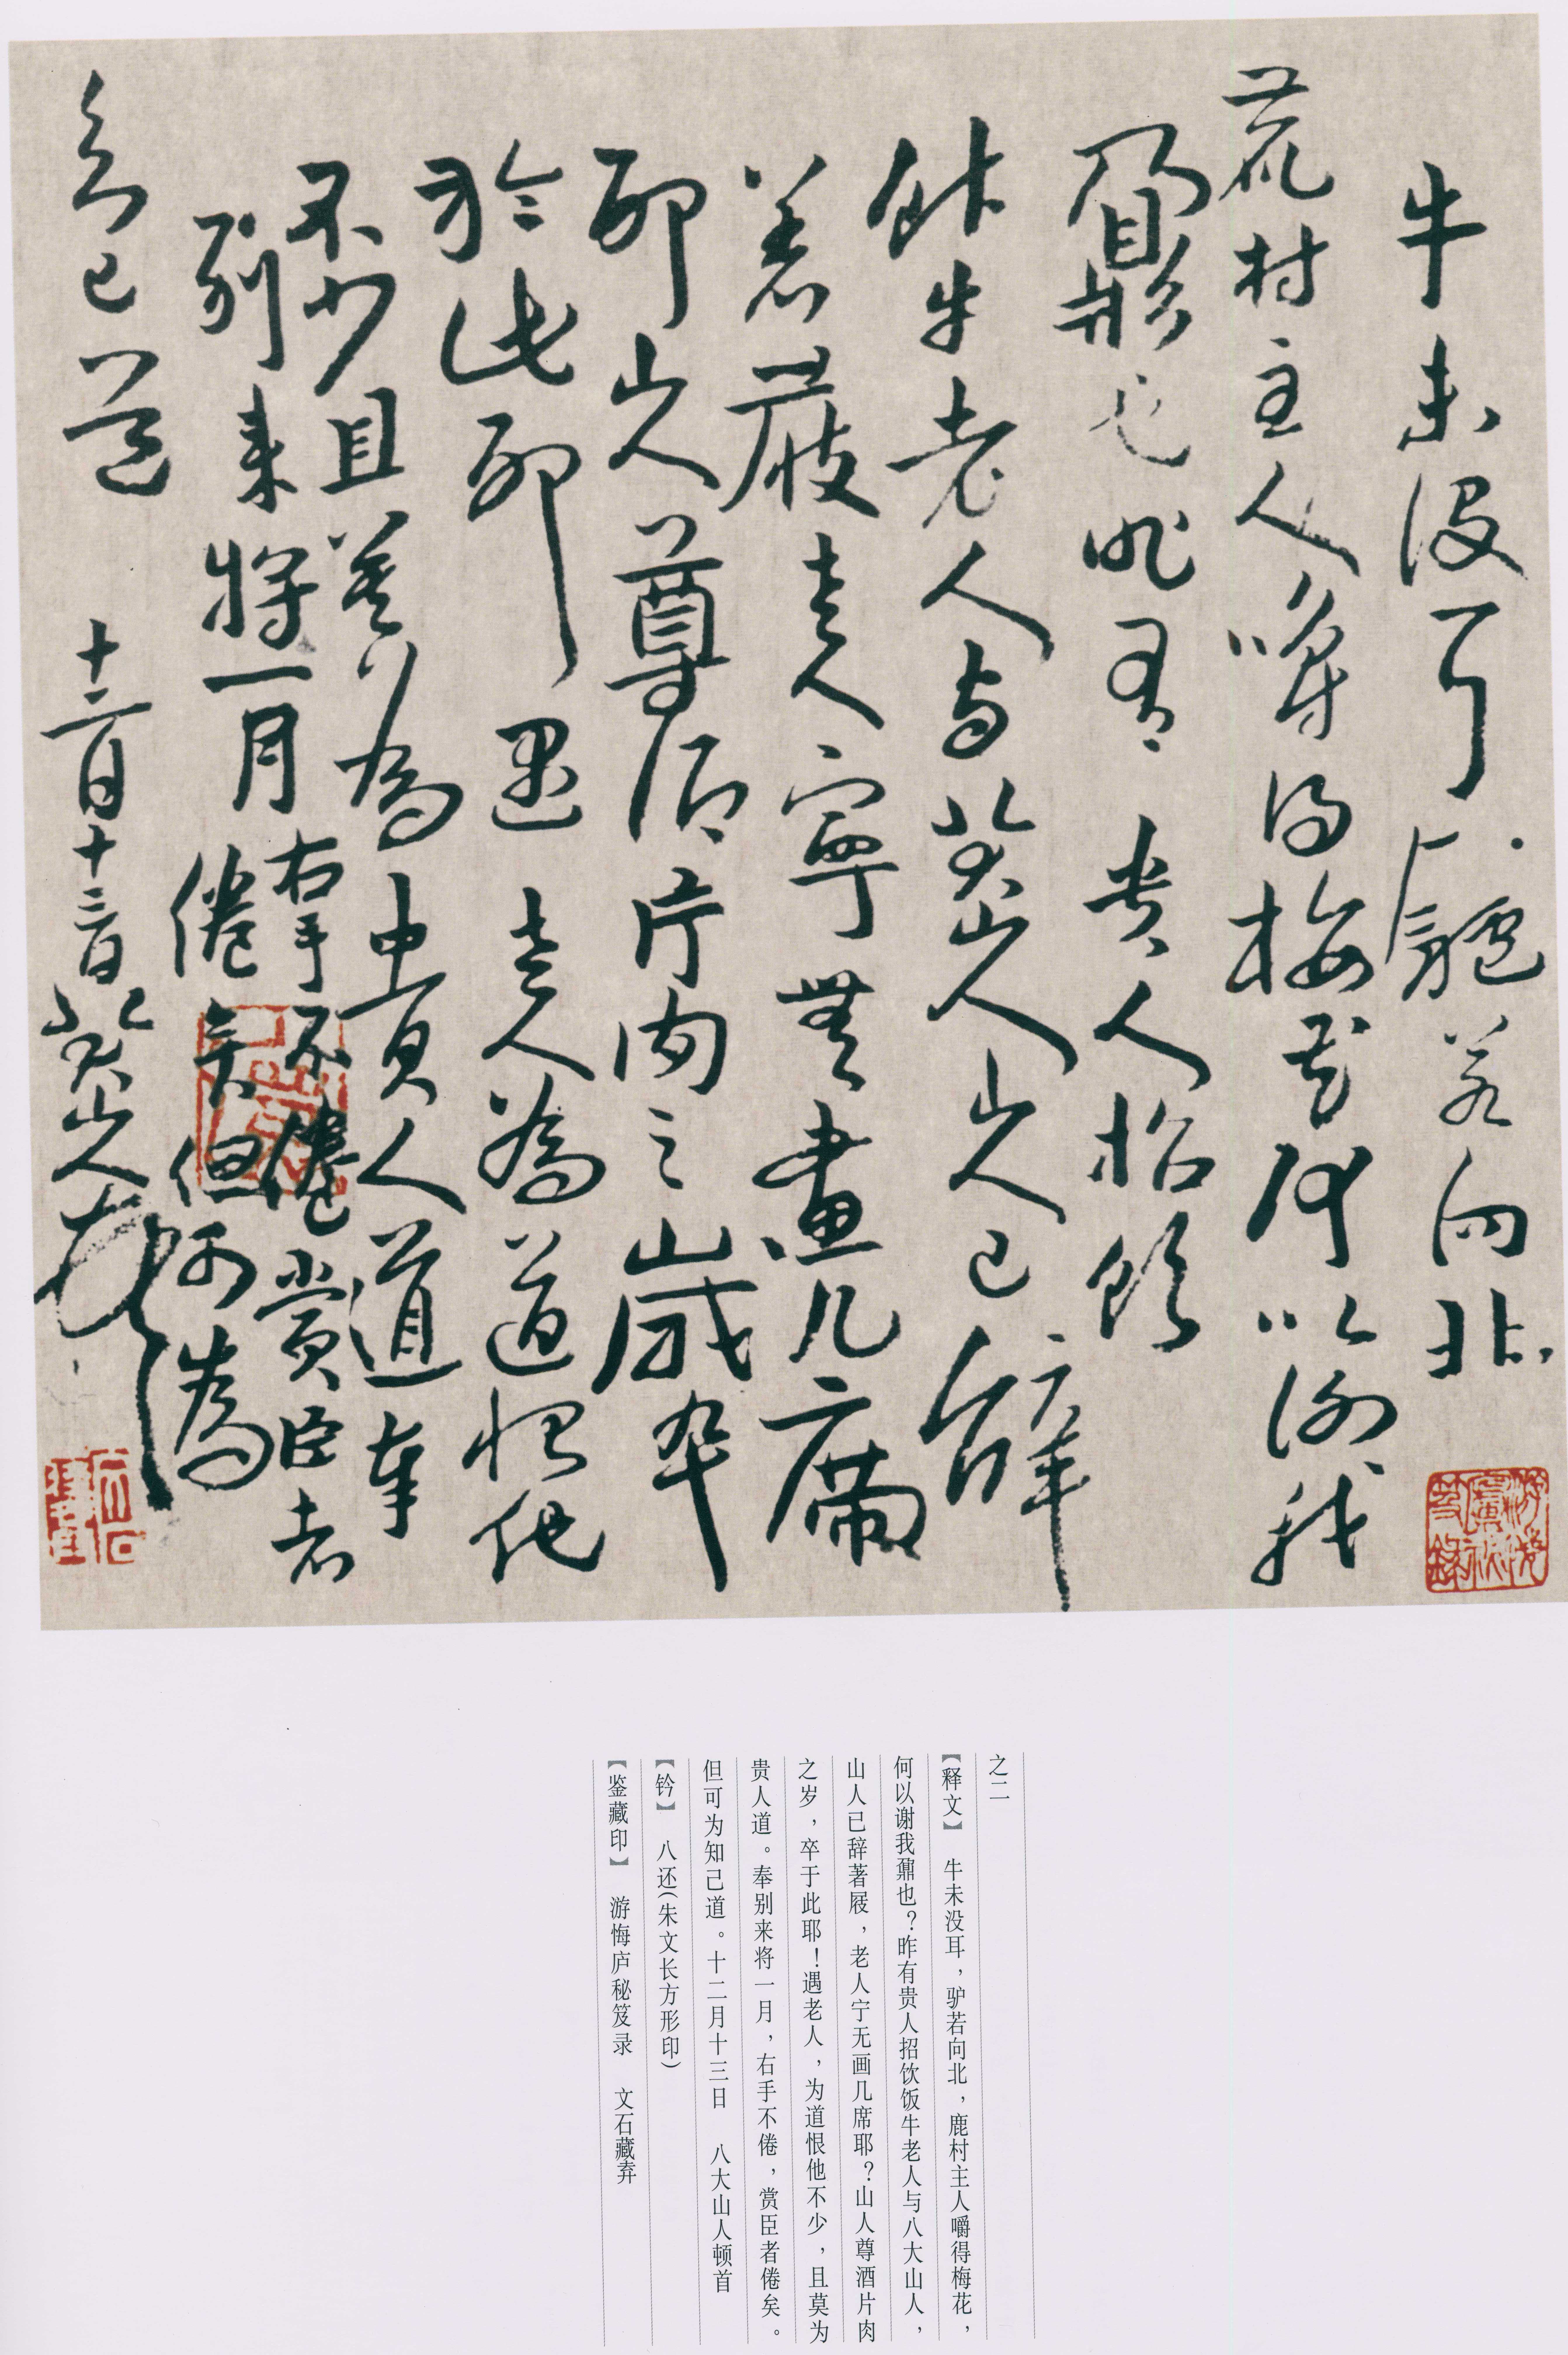 牛未没耳驴若向北
荒村主人嚼得梅花何以谢我
鼐也昨有贵人招饮
饭牛老人与八大山人山人已辞
著屐老人宁無畫几席
耶山人尊酒片肉之歲卒
於此耶遇老人為道恨他
不少且莫為貴人道奉
别来将一月右手不倦賞臣者
倦矣但可為
知己道 十二月十三日 八大山人顿首
之二
【释文】 牛未没耳，驴若向北，鹿村主人嚼得梅花，
何以谢我鼐也？昨有贵人招饮饭牛老人与八大山人，
山人已辞著屐，老人宁无画几席耶？山人尊酒片肉
之岁，卒于此耶！遇老人，为道恨他不少，且莫为
贵人道。奉别来将一月，右手不倦，赏臣者倦矣。
但可为知己道。十二月十三日 八大山人顿首
【钤】 八还（朱文长方形印）
【鉴藏印】 游悔庐秘笈录 文石藏弆